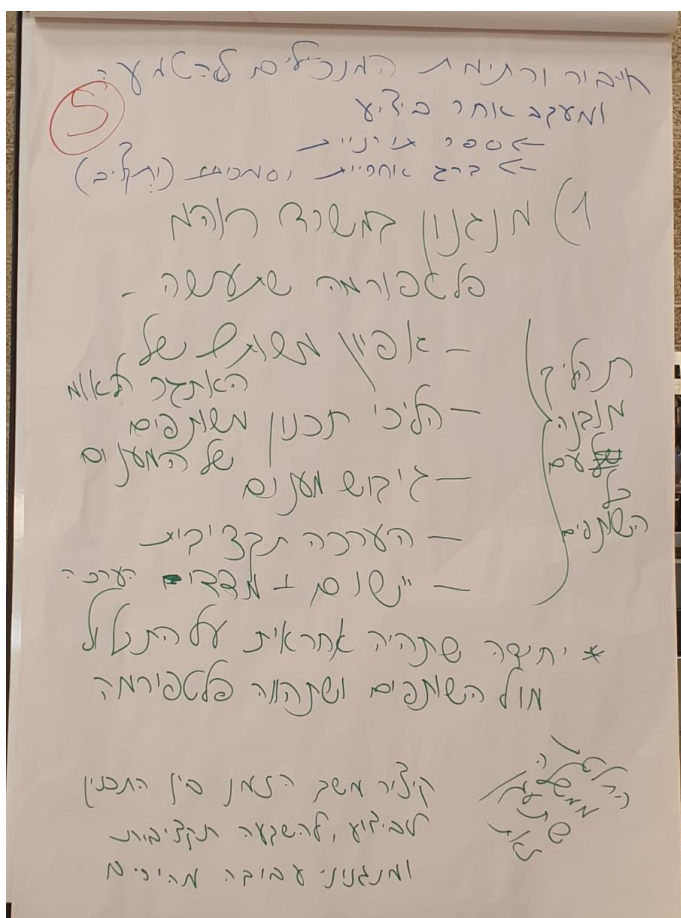 חיבור ורתימת המנכ"לים להטמעה
5
ומעקב אחר ביצוע
← ספר תורניית
← ברג אחריות וסמכות (יתקיים)
1) מנגנון במשרד רוהמ
פלטפורמה שתעשה -
- אפיון משותף של
האתגר הלאומי
- הליכי תכנון משותפים
של המענים
- גיבוש מענים
- הערכה תקציבית
- יישום + מדדים הערכה
תהליך
מובנה
עם
כל
השותפים
* יחידה שתהיה אחראית על התכלול
מול השותפים ושתהווה פלטפורמה
קיצור משך הזמן בין התכנון
לביצוע, להשבעה תקציבית
ומנגנוני עבודה מהירים
החלטה
ממשלה
שתעגן
זאת